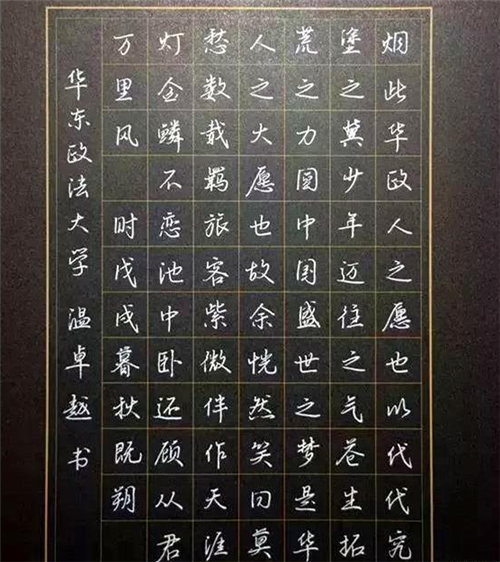 烟此华政人之愿也以代代究
堂之冀少年迈往之气苍生拓
荒之力圆中国盛世之梦是华
人之大愿也故余恍然笑曰莫
愁数载羁旅客紫微伴作天涯
灯金鳞不恋池中卧还顾从君
万里风 时戊戌暮秋既朔
华东政法大学 温卓越 书